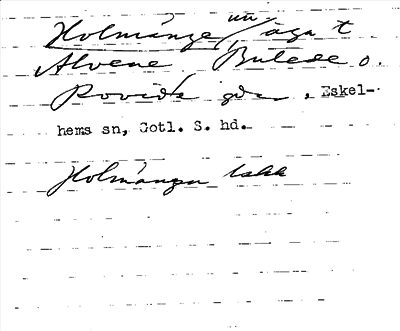 Holmänge / äga t
Alvene, Bulede o.
Rovide gdr, Eskel-
hems sn, Gotl. S. hd.
Holmängen